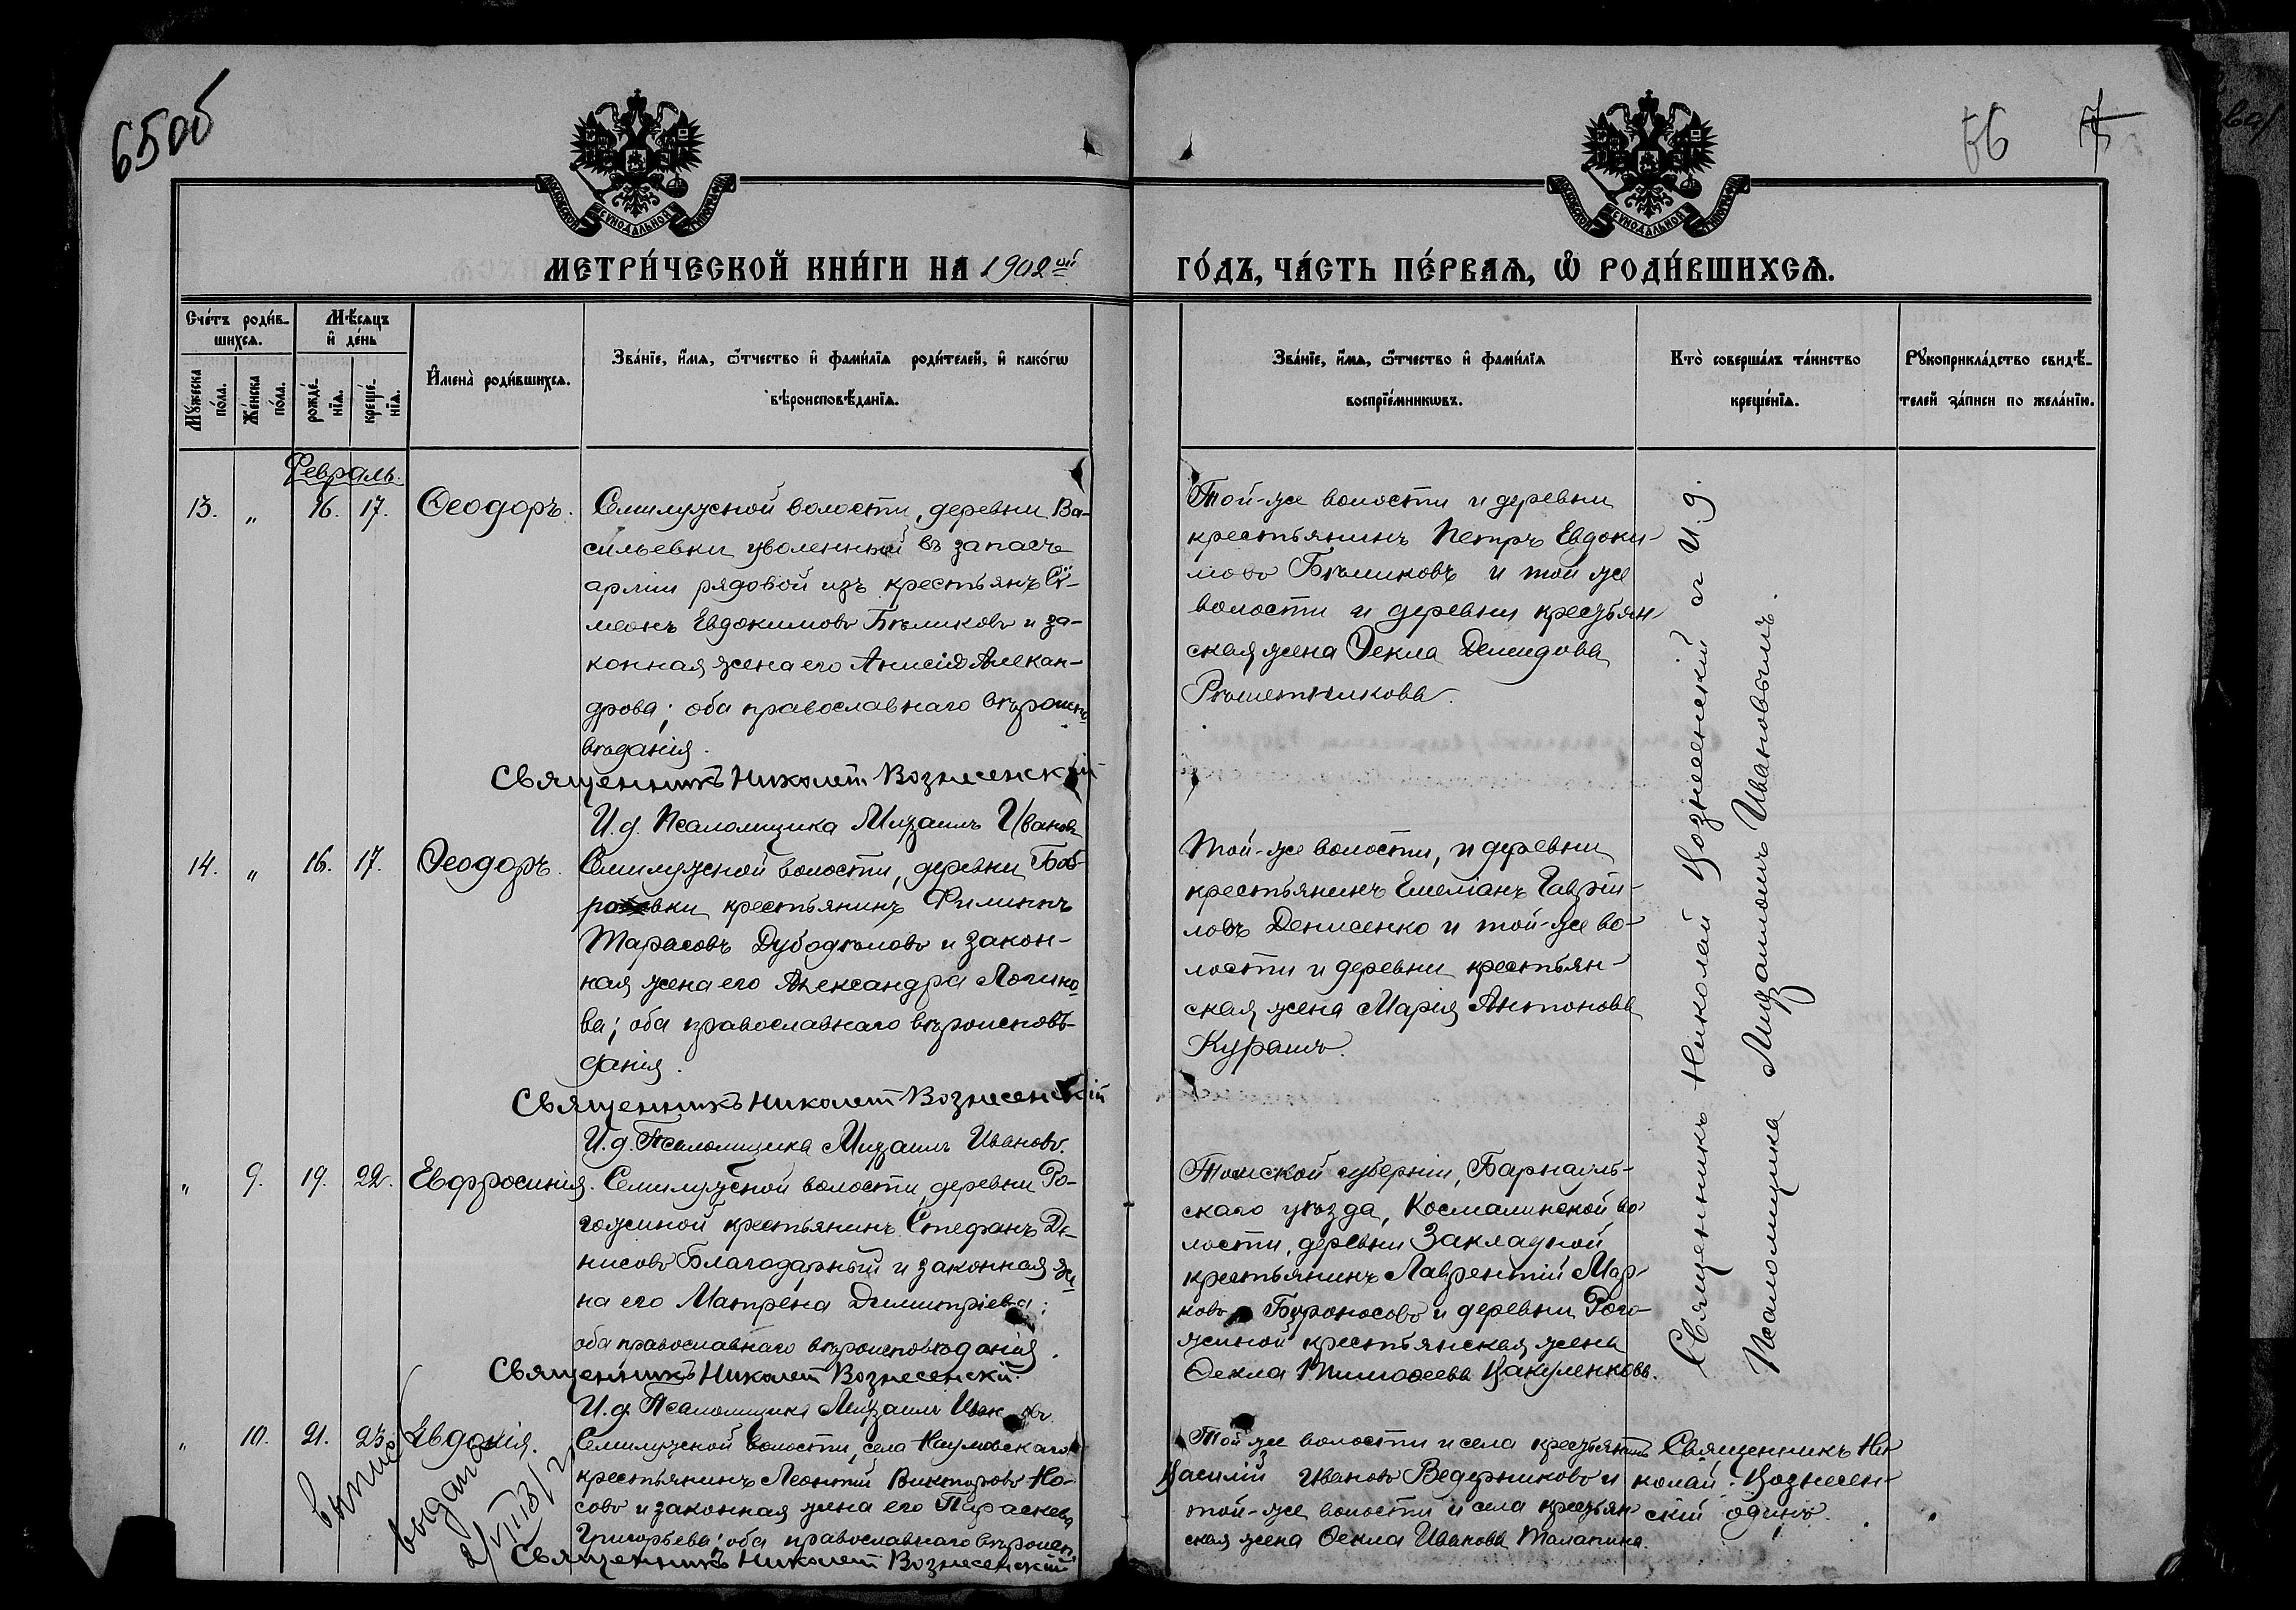 65об
66
МОСКОВСКОЙ СѴНОДАЛЬНОЙ ТИПОГРАФІИ
МОСКОВСКОЙ СѴНОДАЛЬНОЙ ТИПОГРАФІИ
МЕТРИ́ЧЕСКОЙ КНИ́ГИ НА 1902ой
ГО́ДЪ, ЧА́СТЬ ПЕ́РВАѦ, Ѽ РОДИ́ВШИХСѦ.
Счéтъ роди́в-
шихсѧ.
Мѣ́сѧцъ
и҆ дéнь
Мꙋ́жеска
пóла.
Жéнска
пóла.
рождé-
нїѧ.
крещé-
нїѧ.
И҆менà роди́вшихсѧ.
Звáнїе, и҆́мѧ, ѻ҆́тчество и҆ фами́лїѧ роди́телей, и҆ какóгѡ
вѣроисповѣ́данїѧ.
Звáнїе, и҆́мѧ, ѻ҆́тчество и҆ фами́лїѧ
воспрїéмникѡвъ.
Ктò совершáлъ тáинство
крещéнїѧ.
Рꙋкоприклáдство свидѣ́-
телей зáписи по желáнїю.
Февраль.
13. " 16. 17. Ѳеодоръ.
Семилужской волости, деревни Ва-
сильевки уволенный въ запасъ
арміи рядовой изъ крестьянъ Сѵ-
меонъ Евдокимовъ Бѣликовъ и за-
конная жена его Анисія Алексан-
дрова; оба православнаго вѣроиспо-
вѣданія.
Священникъ Николай Вознесенскій
И.д. Псаломщика Михаилъ Ивановъ
Той-же волости и деревни
крестьянинъ Петръ Евдоки-
мовъ Бѣликовъ и той же
волости и деревни крестьян-
ская жена Ѳекла Демидова
Рѣшетникова.
14. " 16. 17. Ѳеодоръ.
Семилужской волости, деревни Боб-
ровки крестьянинъ Филиппъ
Тарасовъ Дубодѣловъ и закон-
ная жена его Александра Логино-
ва; оба православнаго вѣроисповѣ-
данія.
Священникъ Николай Вознесенскій
И.д. Псаломщика Михаилъ Ивановъ.
Той-же волости, и деревни
крестьянинъ Емеліанъ Гаврии-
ловъ Денисенко и той-же во-
лости и деревни крестьян-
ская жена Марія Антонова
Курашъ.
" 9. 19. 22. Евфросинія.
Семилужной волости деревни Ро-
гожиной крестьянинъ Стефанъ Де-
нисовъ Благодарный и законная же-
на его Матрена Димитріева;
оба православнаго вѣроисповѣданія.
Священникъ Николай Вознесенскій.
И.д. Псаломщика Михаилъ Ивановъ.
Томской губерніи, Барнауль-
скаго уѣзда, Космалинской во-
лости, деревни Закладной
крестьянинъ Лаврентій Мар-
ковъ Бурносовъ и деревни Рого-
жиной крестьянская жена
Ѳекла Тимоѳеева Вакуленкова.
Священникъ Николай Вознесенскій съ И.д.
Псаломщика Михаиломъ Ивановымъ.
" 10. 21. 23. Евдокія.
Семилужной волости, села Наумовскаго
крестьянинъ Леонтій Викторовъ Но-
совъ и законная жена его Параскева
Григорьева; оба православнаго вѣроисп.
Священникъ Николай Вознесенскій
Той же волости и села крестьянинъ
Василій Ивановъ Ведерниковъ и
той-же волости и села крестьян-
ская жена Ѳекла Иванова Талапина.
Священникъ Ни-
колай Вознесен-
скій одинъ.
выпис
выдана